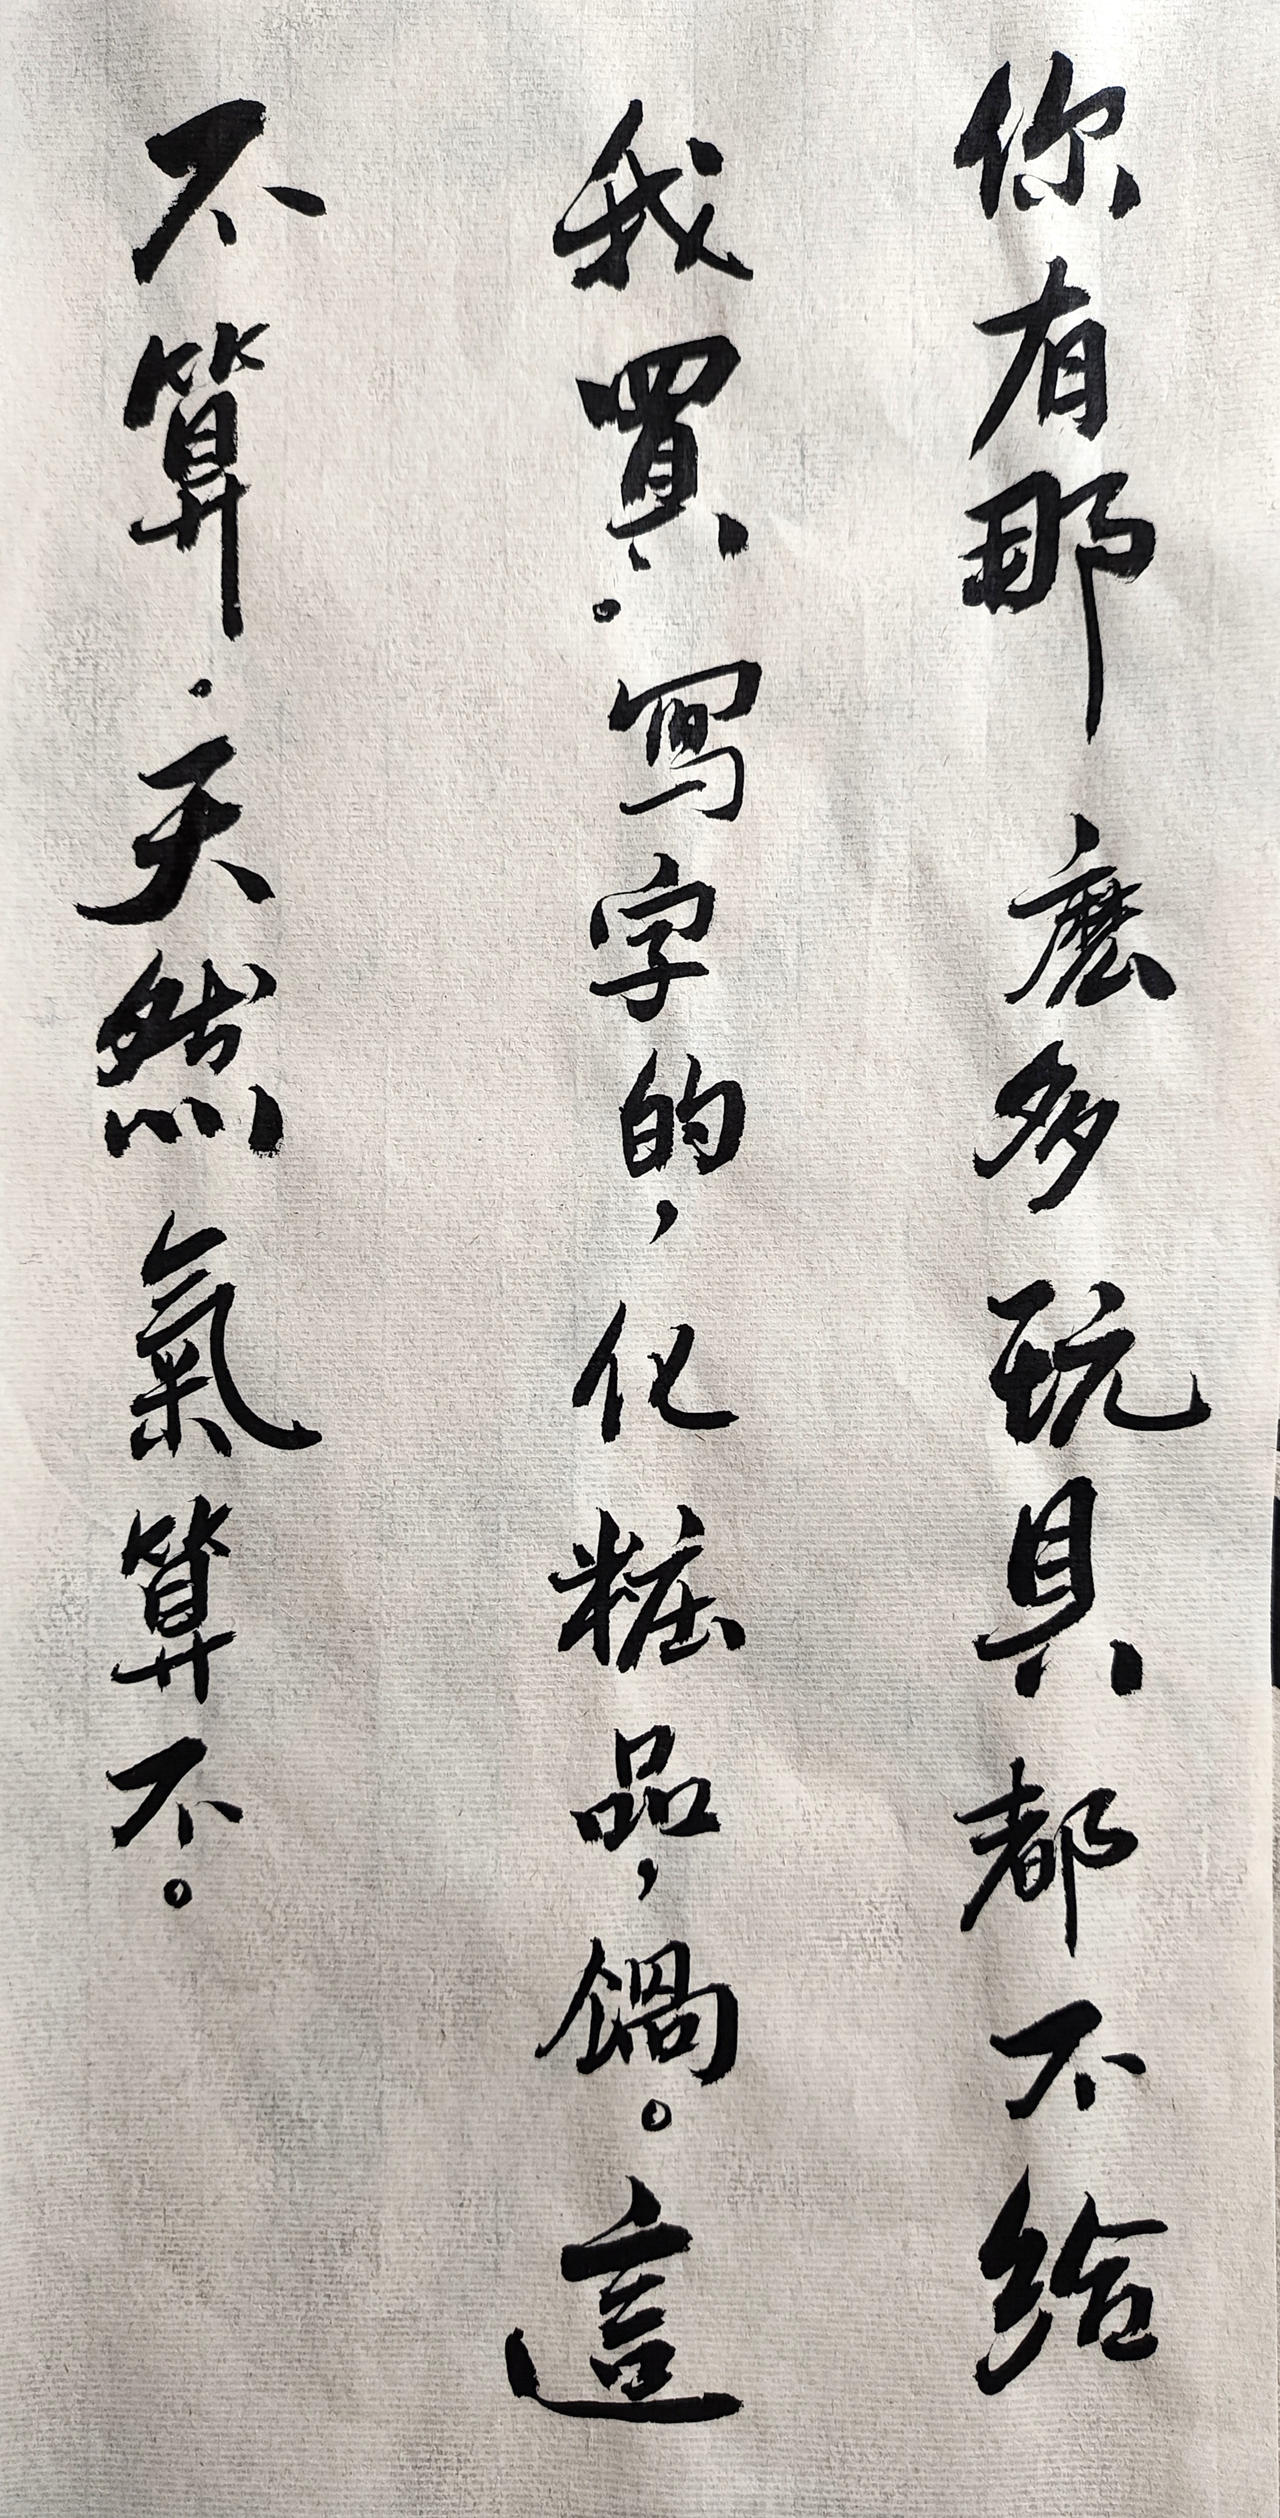 你有那麽多玩具都不给
我買。寫字的，化粧品，鍋。這
不算。天然氣算不。